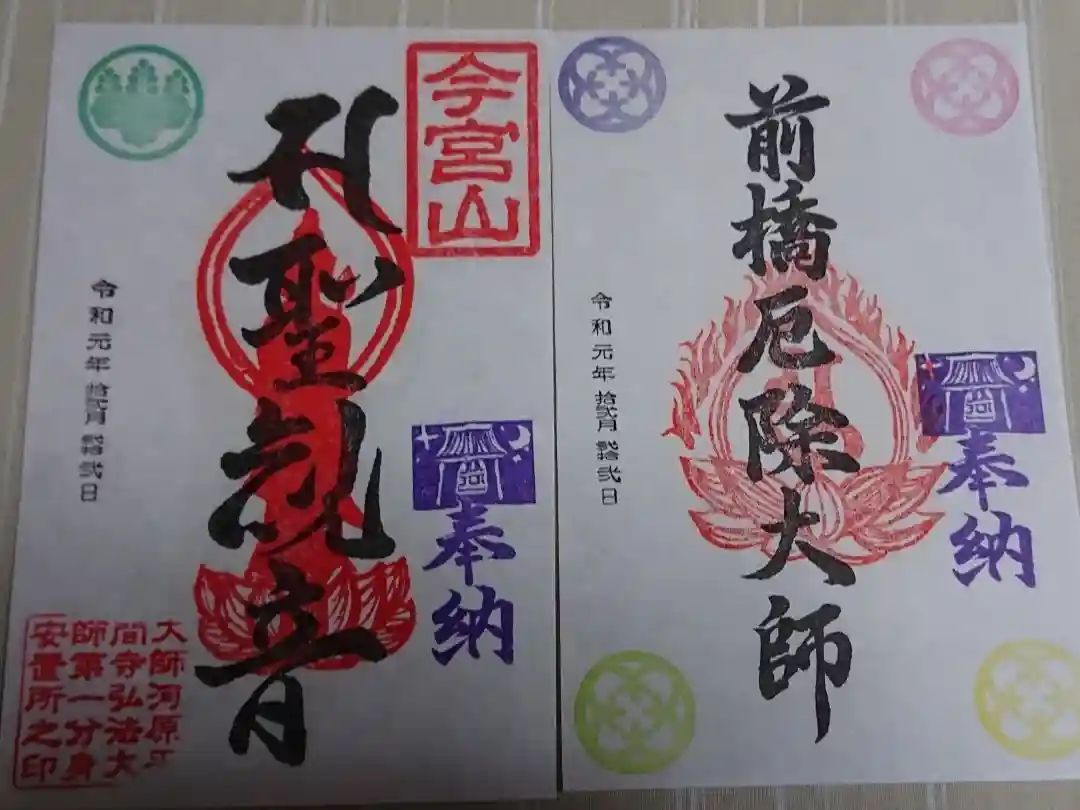 今宮山
奉納
聖観音
令和元年 拾弐月 弐拾弐日
大師河原平
間寺弘法大
師第一分身
安置所之印
奉納
前橋厄除大師
令和元年 拾弐月 弐拾弐日